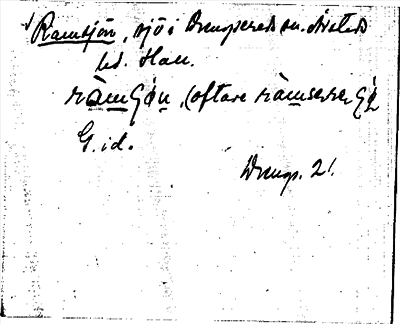 Ramsjön, sjö i Drengsered sn. Årstads
hd. Hall.
ràmʃø̀n, (oftare ràmserrə ʃø̀
G. id.
Drengs. 21.